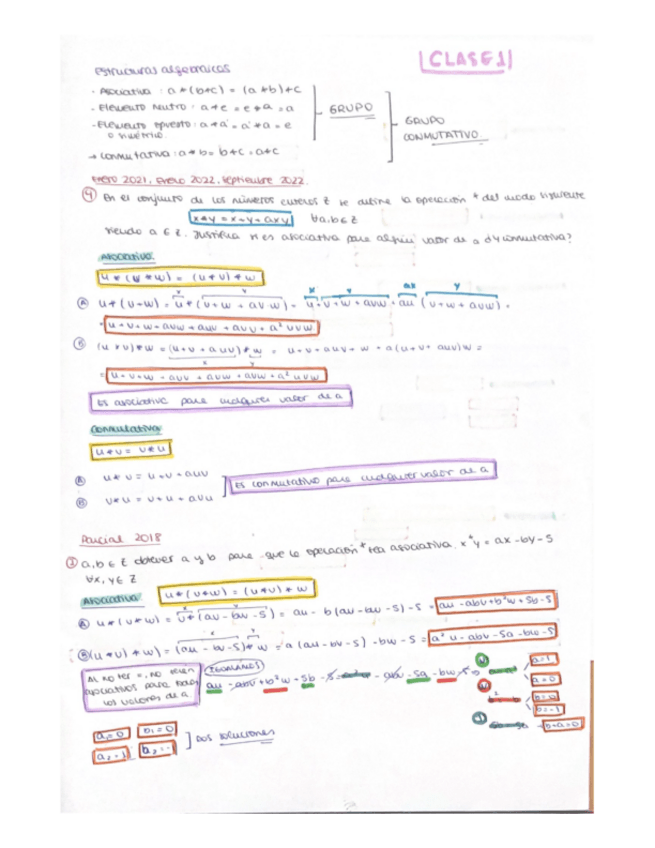 CLASE 1
Estructuras algebraicas
· Asociativa : a*(b*c) = (a*b)*c
- Elemento neutro : a*e = e*a = a
- Elemento opuesto : a*a' = a'*a = e
o simétrico.
GRUPO
GRUPO
CONMUTATIVO.
→ Conmutativa : a*b = b*c = a*c
Enero 2021, Enero 2022, Septiembre 2022.
④ En el conjunto de los números enteros Z se define la operación * del modo siguiente
x*y = x+y+axy ∀a,b∈Z
siendo a ∈ Z. Justifica si es asociativa para algún valor de a d y conmutativa?
Asociativa:
u*(v*w) = (u*v)*w
Ⓐ u*(v*w) = u*(v+w+avw) = u+v+w+avw+au(v+w+avw) =
= u+v+w+avw+auv+auw+a²uvw
Ⓑ (u*v)*w = (u+v+auv)*w = u+v+auv+w+a(u+v+auv)w =
= u+v+w+auv+auw+avw+a²uvw
Es asociativa para cualquier valor de a
Conmutativa
u*v = v*u
Ⓐ u*v = u+v+auv
Ⓑ v*u = v+u+avu
Es conmutativo para cualquier valor de a
Parcial 2018
① a,b ∈ Z obtener a y b para que la operación * sea asociativa. x*y = ax-by-5
∀x,y∈Z
Asociativa
u*(v*w) = (u*v)*w
Ⓐ u*(v*w) = u*(av-bw-5) = au-b(av-bw-5)-5 = au-abv+b²w+5b-5
Ⓑ (u*v)*w) = (au-bv-5)*w = a(au-bv-5)-bw-5 = a²u-abv-5a-bw-5
Al no ser =, no serán
asociativas para todos
los valores de a
IGUALAMOS
au-abv+b²w+5b-5 = -abv-5a-bw-5 ⇒
a=1
a=0
b=0
b=-1
b+a=0
a₁=0 b₁=0
a₂=1 b₂=-1
Dos soluciones